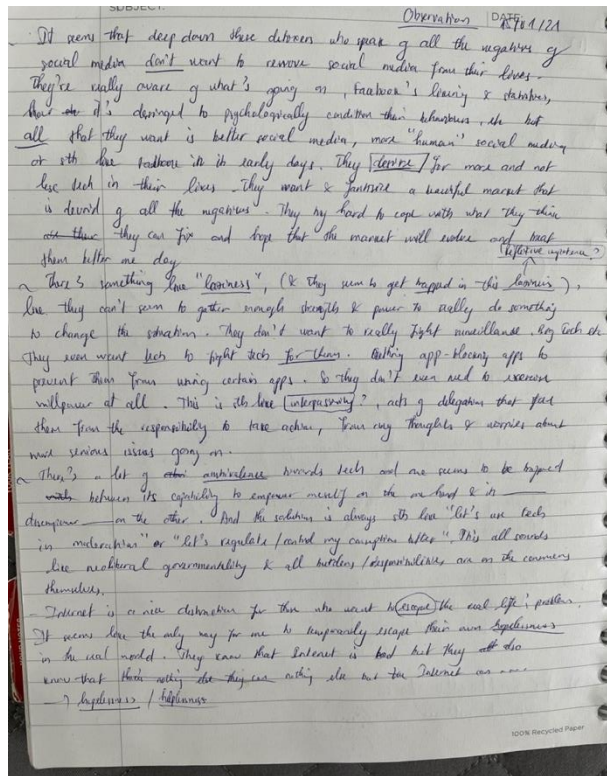 SUBJECT:
Observation DATE: /01/21
- It seems that deep down these detoxers who speak of all the negatives of
social media don't want to remove social media from their lives.
They're really aware of what's going on, Facebook's liking & statuses,
how it's designed to psychologically condition their behaviours, etc but
all that they want is better social media, more "human" social media
or sth like Facebook in its early days. They desire for more and not
less tech in their lives. They want & fantasize a beautiful market that
is devoid of all the negatives. They try hard to cope with what they think
they can fix and hope that the market will evolve and treat
them better one day
(Reflexive impotence?)
~ There's something like "laziness", (& they seem to get trapped in this laziness),
like they can't seem to gather enough strength & power to really do something
to change the situation. They don't want to really fight surveillance, Big tech etc
They even want tech to fight tech for them. Getting app-blocking apps to
prevent them from using certain apps. So they don't even need to exercise
willpower at all. This is sth like interpassivity?, acts of delegation that free
them from the responsibility to take action, from any thoughts & worries about
more serious issues going on.
~ There's a lot of ambivalence towards tech and one seems to be trapped
between its capability to empower on the one hand & in
disempower on the other. And the solution is always sth like "let's use tech
in moderation" or "let's regulate/control my consumption better". This all sounds
like neoliberal governmentality & all burdens/responsibilities are on the consumers
themselves.
- Internet is a nice distraction for those who want to escape the real life's problem.
It seems like the only way for one to temporarily escape their own hopelessness
in the real world. They know that Internet is bad but they also
know that there's nothing else but the Internet
→ hopelessness / helplessness
100% Recycled Paper